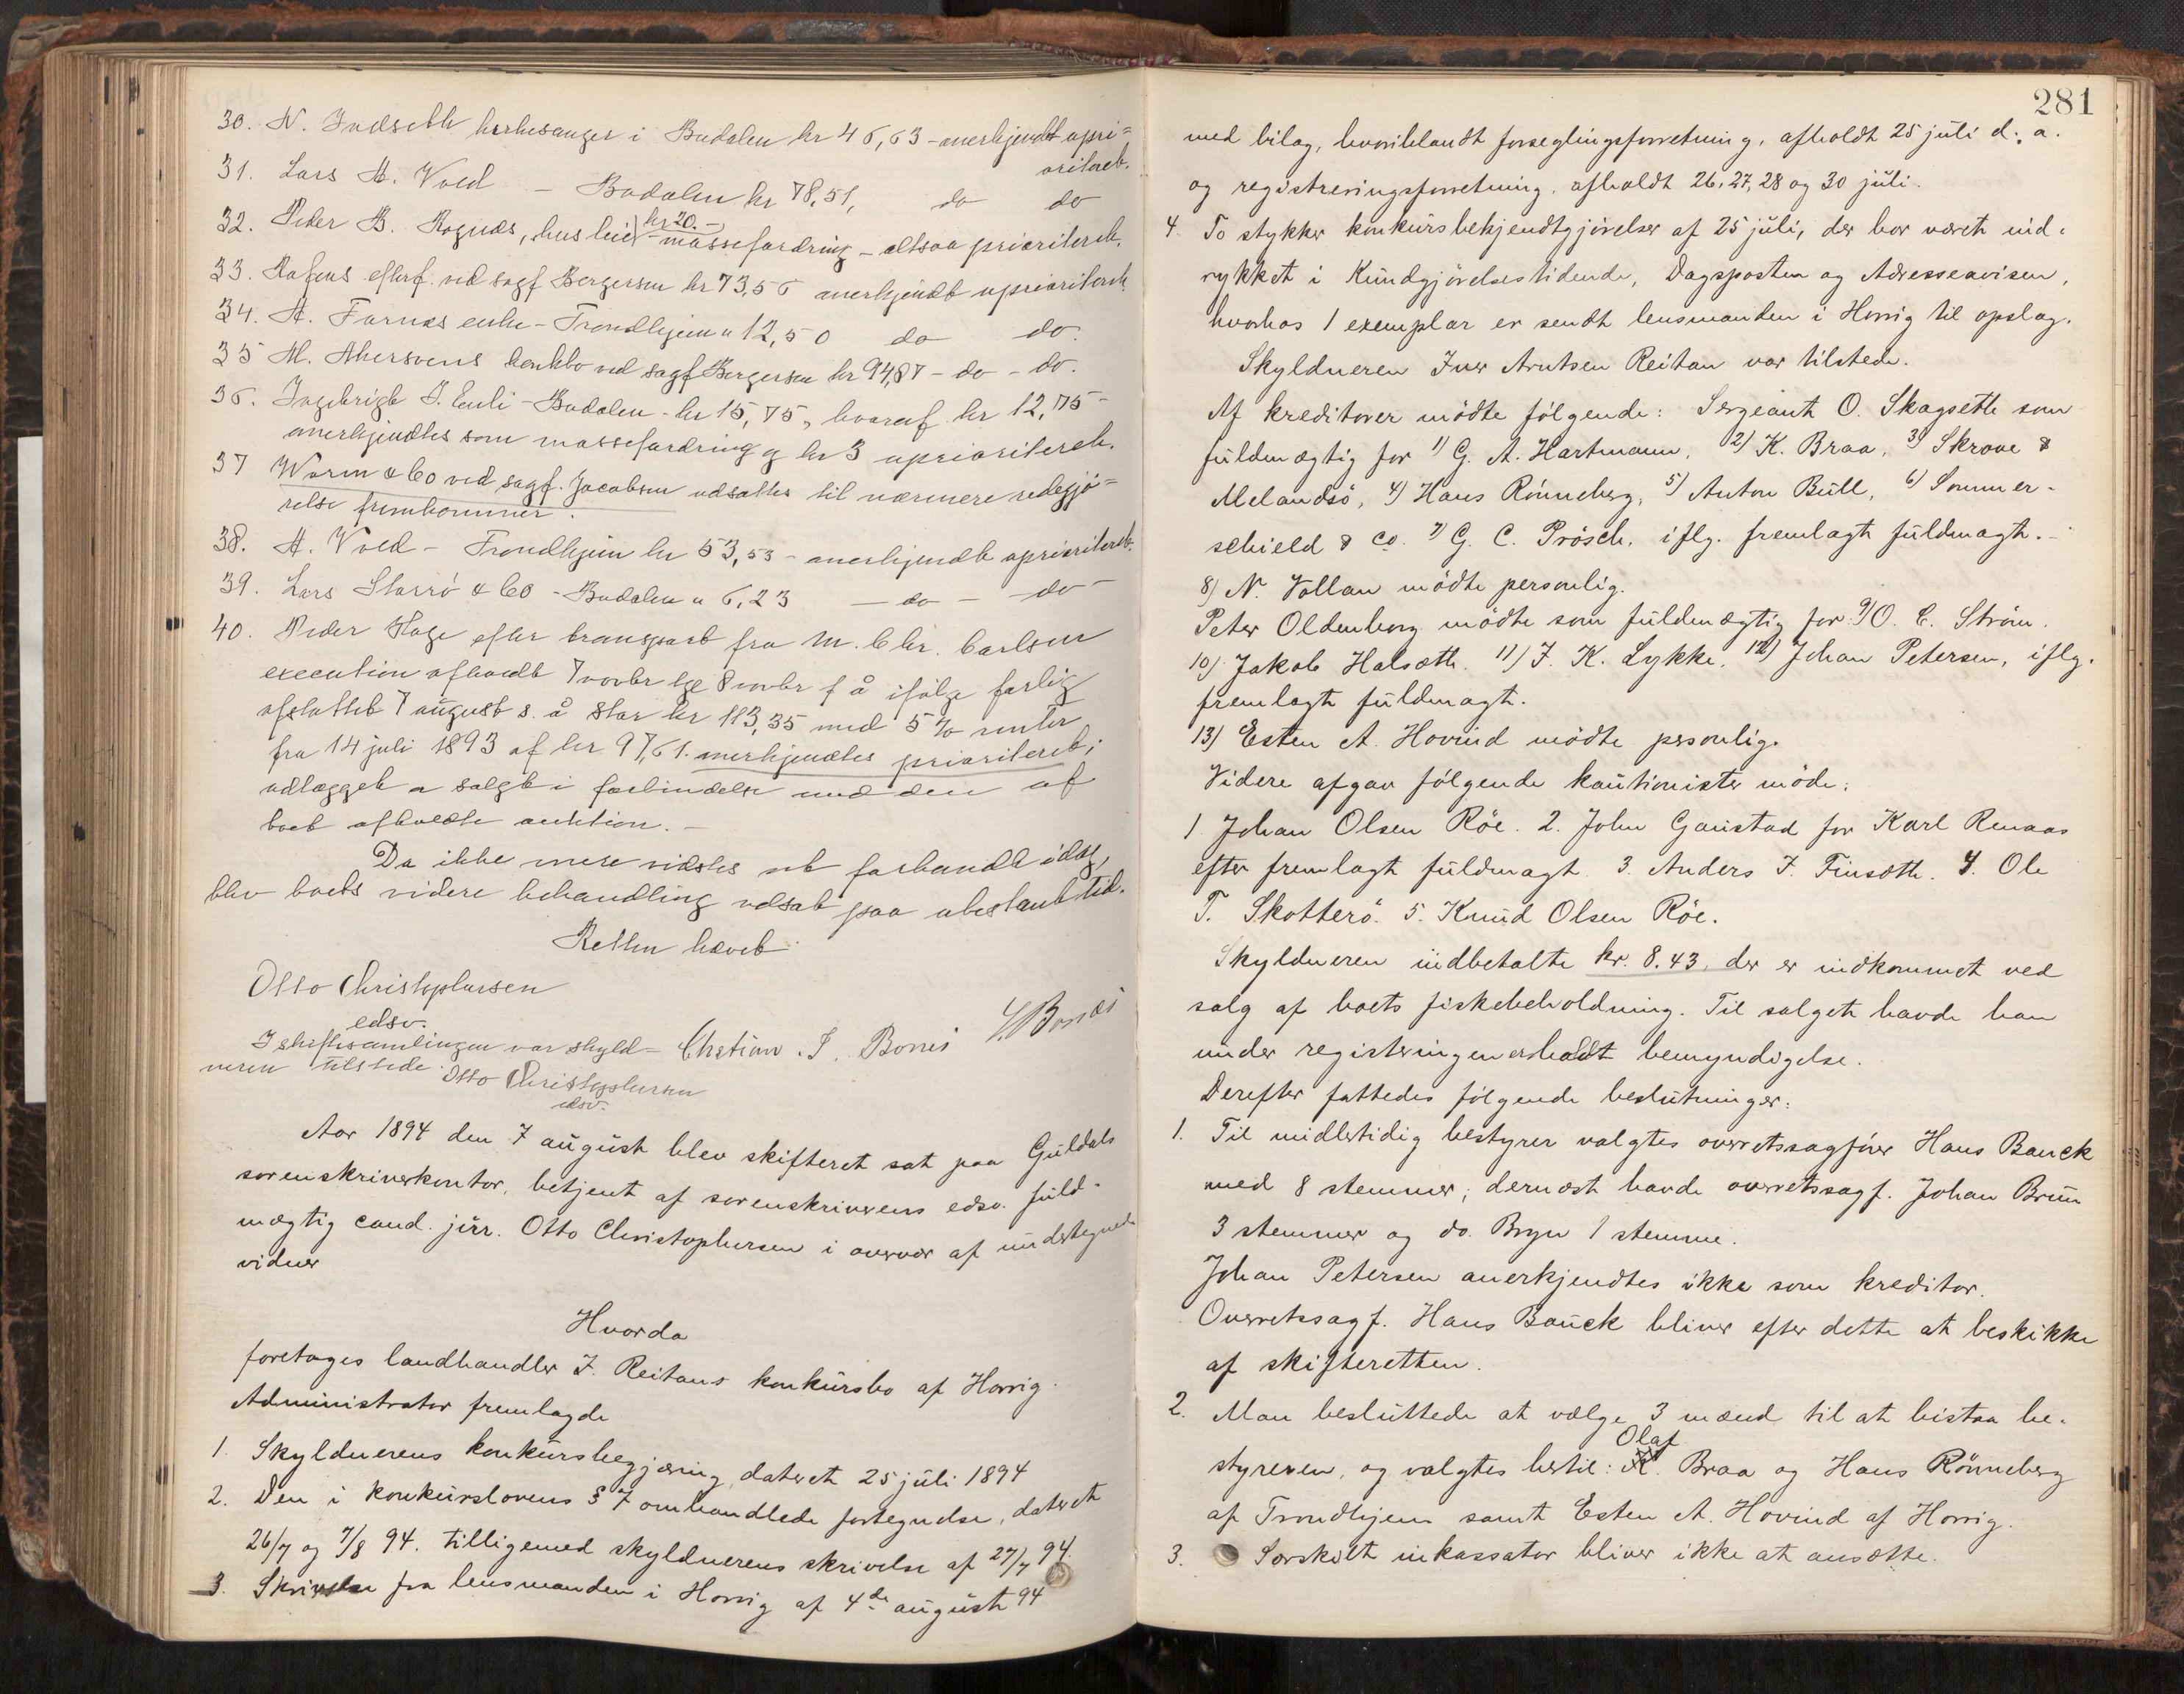 30. N. Indseth kirkesanger i Budalen kr 46,63 - anerkjendt upri=
oriteret.
31. Lars A. Vold - Budalen kr 78,51, do do
32. Peder B. Rognes, husleie kr 20.- massefordring - altsaa prioriteret.
33. efterf. ved sagf Bergersen kr 73,56 anerkjendt uprioriteret.
34. A. Farnæs enke - Trondhjem " 12,50 do do.
35 M. konkbo ved sagf Bergersen kr 94,87 - do - do.
36. Ingebrigt J. Enli - Budalen - kr 15,75, hvoraf kr 12,75 -
anerkjendtes som massefordring og kr 3 uprioriteret.
37 Worm & Co ved sagf. Jacobsen udsattes til nærmere redegjö=
relse fremkommer.
38. A. Vold - Trondhjem kr 53,53 - anerkjendt uprioriteret.
39. Lars Storrö & Co - Budalen " 6,23 - do - - do -
40. Peder Hage efter transport fra M. Chr. Carlsen
execution afholdt 7 novbr lge 8 novbr f å ifölge forlig
afsluttet 7 august s. å stor kr 113,35 med 5 % renter
fra 14 juli 1893 af kr 97,61. anerkjendtes prioriteret;
udlægget er solgt i forbindelse med den af
boet afholdte auktion. -
Da ikke mere vidstes at forhandle idag,
blev boets videre behandling udsat paa ubestemt tid.
Retten hævet
Otto Christophersen
edsv.
I skiftesamlingen var skyld-
neren tilstede.
Otto Christophersen
edsv.
Chstian. J. Bones
Aar 1894 den 7 august blev skifteret sat paa Guldals
sorenskriverkontor, betjent af sorenskriverens edsv. fuld-
mægtig cand. jur. Otto Christophersen i overvær af undertegnede
vidner
Hvorda
foretoges landhandler I. Reitans konkursbo af Horrig.
Administrator fremlagde
1. Skyldnerens konkursbegjæring, dateret 25 juli 1894
2. Den i konkurslovens § 7 omhandlede fortegnelse, dateret
26/7 og 7/8 94. tilligemed skyldnerens skrivelse af 27/7 94.
3. Skrivelse fra lensmanden i Horrig af 4de august 94
281
med bilag, hvoriblandt forseglingsforretning, afholdt 25 juli d. a.
og registreringsforretning, afholdt 26, 27, 28 og 30 juli.
4. To stykker konkursbekjendtgjörelser af 25 juli, der har været ind-
rykket i Kundgjörelsestidende, Dagsposten og Adresseavisen,
hvorhos 1 exemplar er sendt lensmanden i Horrig til opslag.
Skyldneren Iver Arntsen Reitan var tilstede.
Af kreditorer mödte fölgende: Sergeant O. Skagseth som
fuldmægtig for 1) G. A. Hartmann, 2) K. Braa, 3) Skrove &
Melandsö, 4) Hans Rönneberg, 5) Anton Bull, 6) Sommer-
schield & co. 7) G. C. Prösch, iflg. fremlagt fuldmagt. -
8) N. Vollan mödte personlig.
Peter Oldenborg mödte som fuldmægtig for 9) O. C. Ström.
10) Jakob Halsæth. 11) I. K. Lykke, 12) Johan Petersen, iflg.
fremlagt fuldmagt.
13) Esten A. Hovind mödte personlig.
Videre afgav fölgende kautionister möde:
1 Johan Olsen Röe. 2. John Gaustad for Karl Renaas
efter fremlagt fuldmagt. 3. Anders J. Finsæth. 4. Ole
T. Skotterö. 5. Knud Olsen Röe.
Skyldneren indbetalte kr. 8.43, der er indkommet ved
salg af boets fiskebeholdning. Til salget havde han
under registeringen erholdt bemyndigelse.
Derefter fattedes fölgende beslutninger:
1. Til midlertidig bestyrer valgtes overretssagförer Hans Bauck
med 8 stemmer; dernæst havde overretssagf. Johan Bruun
3 stemmer og do. Bryn 1 stemme.
Johan Petersen anerkjendtes ikke som kreditor.
Overretssagf. Hans Bauck bliver efter dette at beskikke
af skifteretten.
2. Man besluttede at vælge 3 mænd til at bistaa be-
styreren, og valgtes hertil: Olaf Braa og Hans Rönneberg
af Trondhjem samt Esten A. Hovind af Horrig.
3. Særskilt inkassator bliver ikke at ansætte.